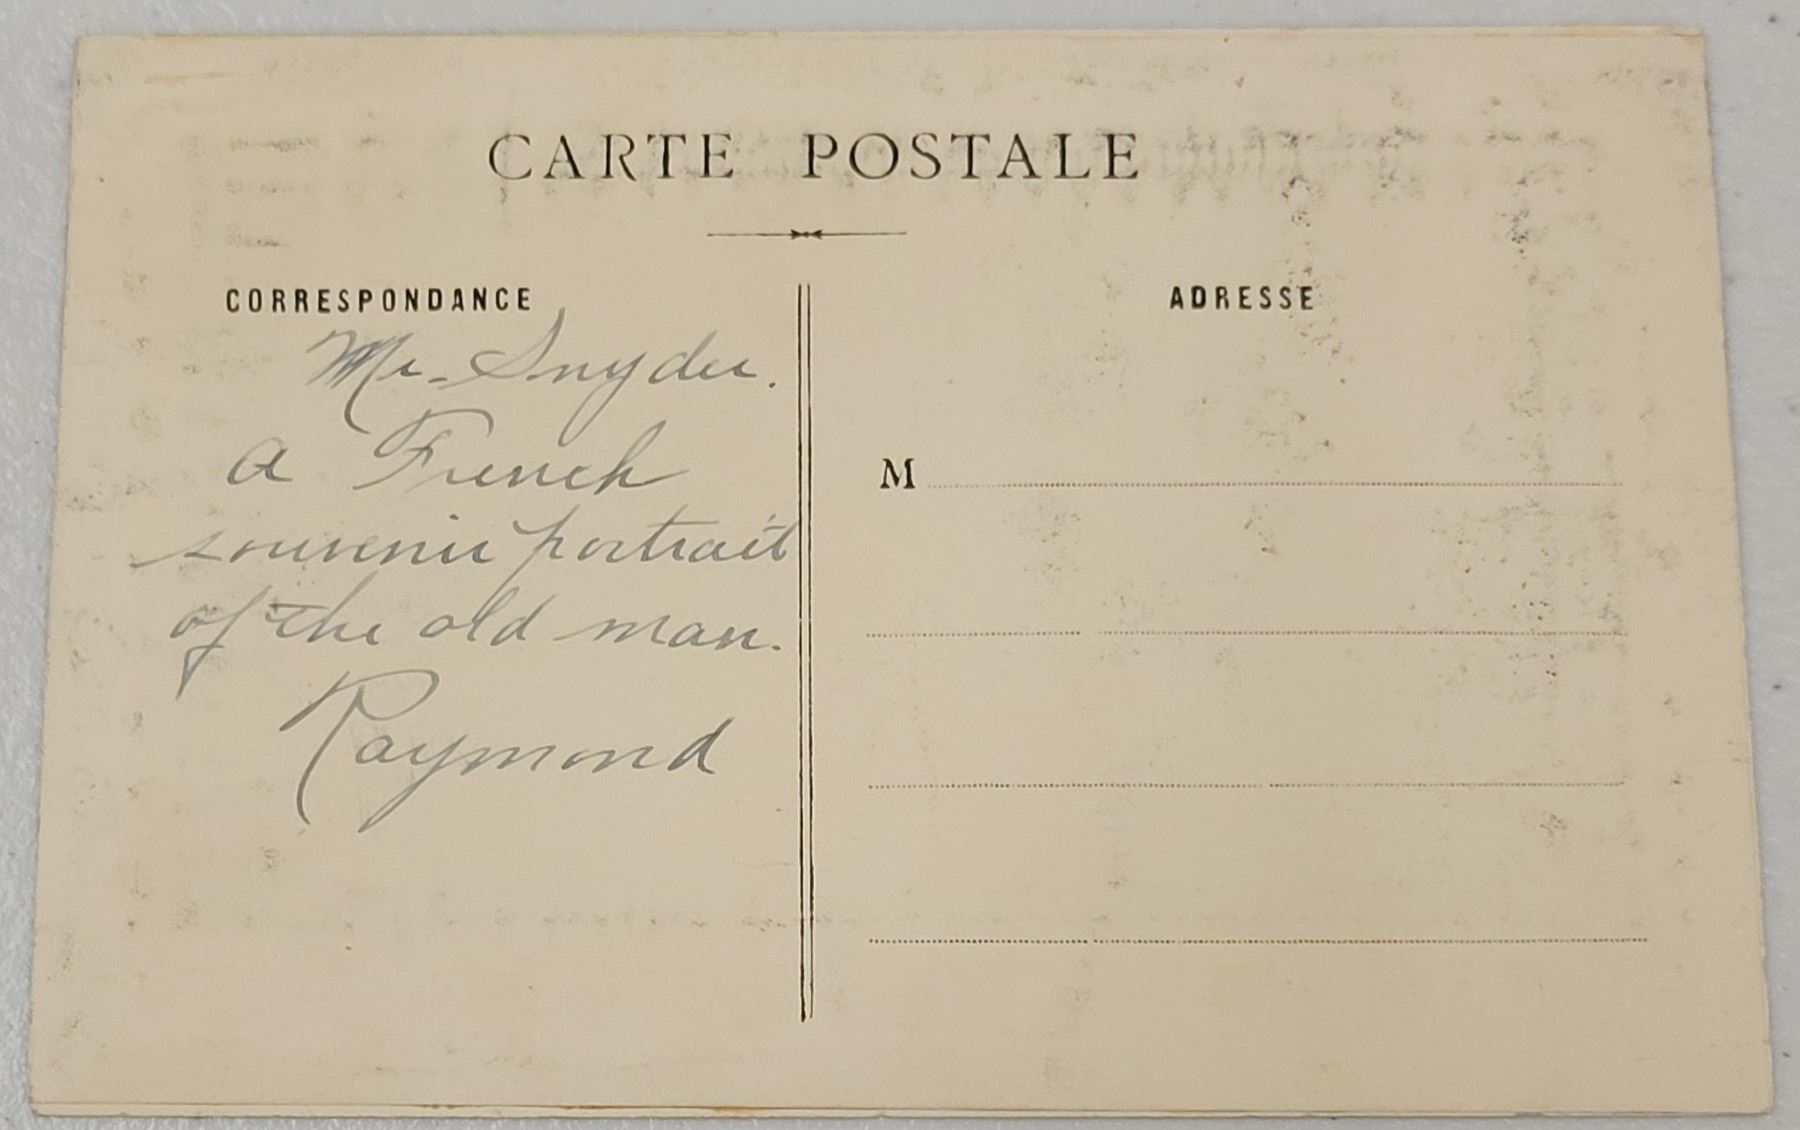 CARTE POSTALE
CORRESPONDANCE
ADRESSE
Mr. Snyder.
a French
souvenir portrait
of the old man.
Raymond
M